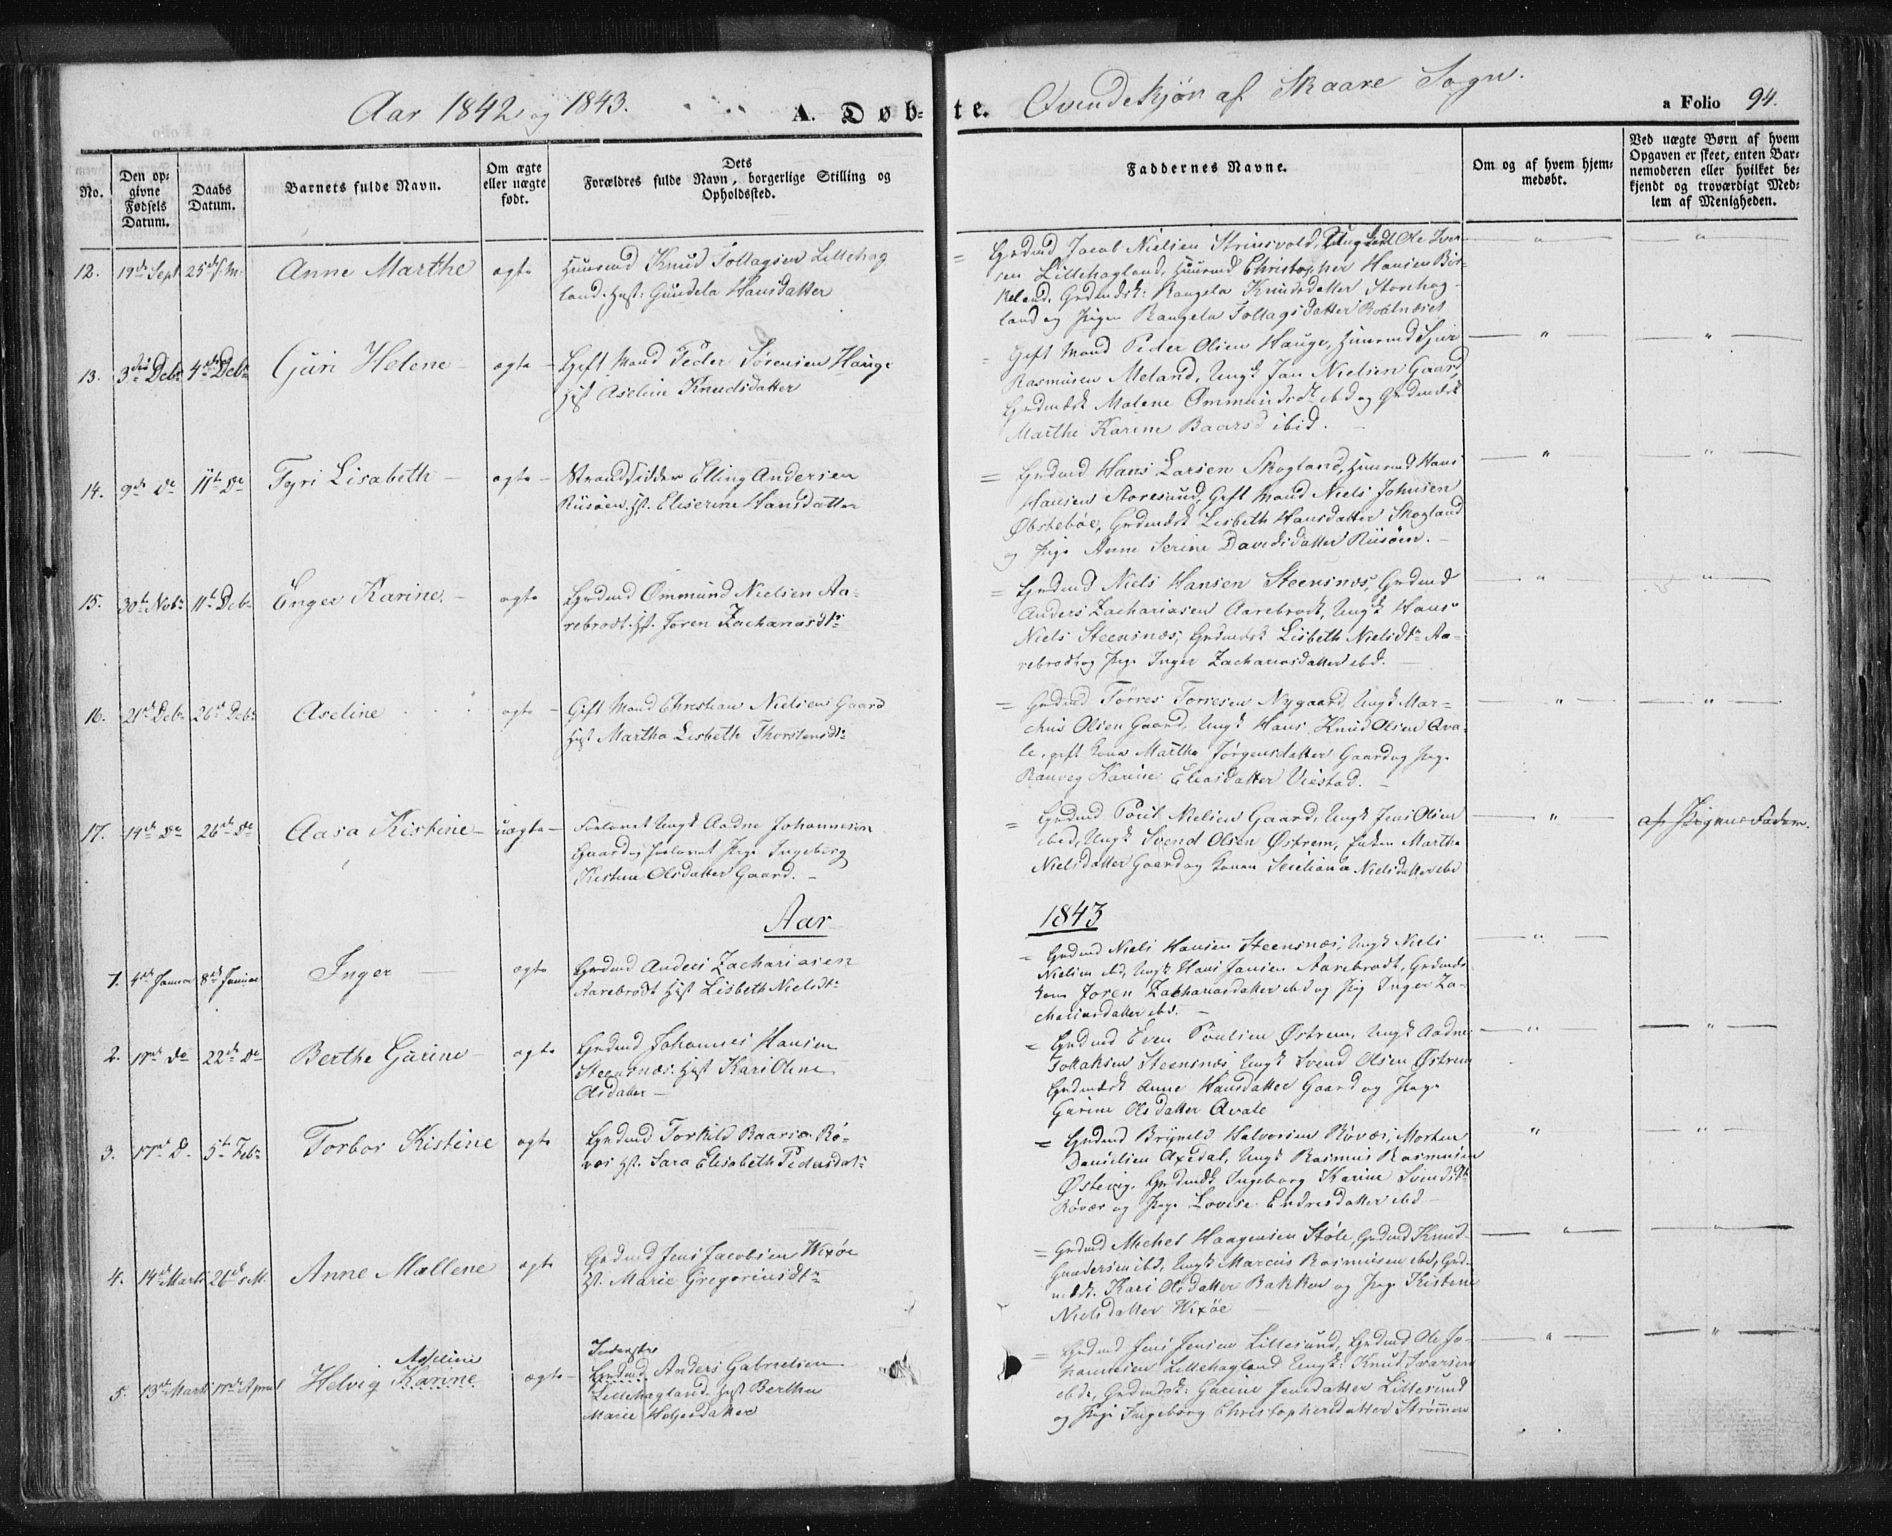 Aar 1842 og 1843.
A. Døb-
te.
Qvindekjøn af Skaare Sogn.
a Folio 94.
No.
Den op-
givne
Fødsels
Datum.
Daabs
Datum.
Barnets fulde Navn.
Om ægte
eller uægte
født.
Dets
Forældres fulde Navn, borgerlige Stilling og
Opholdssted.
Faddernes Navne.
Om og af hvem hjem-
medøbt.
Ved uægte Børn af hvem
Opgaven er skeet, enten Bar-
nemoderen eller hvilket be-
kjendt og troværdigt Med-
lem af Menigheden.
12. 19de Sept 25de s. M. Anne Marthe ægte
Huusmd Knud Tollagsen Lillehog
land. Hust: Gundela Hansdatter
Grdmd Jacob Nielsen Strinsvold, Ungk Ole Iver-
sen Lillehogland, Huusmd Christopher Hansen Bir-
keland, Grdmdsk: Rangela Knudsdatter Storehog-
land og Pigen Rangela Tollagsdatter
13. 3die Debr 4de Debr Guri Helene ægte
Gift Mand Peder Sørensen Hauge
Hust Aseline Knudsdatter
Gift Mand Peder Olsen Hauge, Huusmd Sjur
Rasmusen Meland, Ungk Jan Nielsen Gaard,
Grdmdsk Malene Ommundsd ibid og Grdmdsk
Marthe Karine Baarsd ibid.
14. 9de Do 11te Do Tyri Lisabeth ægte
Strandsidder Elling Andersen
Risøen. Hst. Eliserine Hansdatter
Grdmd Hans Larsen Skogland, Huusmd Hans
Hansen Storesund, Gift Mand Niels Johnsen
Øbstebøe, Grdmdsk Lisbeth Hansdatter Skogland
og Pige Anne Serine Davidsdatter Risøen.
15. 30te Nobr 11te Debr Enger Karine. ægte
Grdmd Ommund Nielsen Aa-
rebrodt. Hst. Joren Zachariasdtr
Grdmd Niels Hansen Steensnæs, Grdmd
Anders Zachariasen Aarebrodt, Ungk Hans
Niels Steensnæs, Grdmdsk Lisbeth Nielsdtr Aa-
rebrodt og Pige Inger Zachariasdatter ibd.
16. 21de Debr 26de Debr Aseline ægte
Gift Mand Christian Nielsen Gaard
Hust Martha Lisbeth Thorstensdtr
Grdmd Tørres Torresen Nygaard, Ungk Mar-
chus Olsen Gaard, Ungk Hans Knud Olsen Qva-
le, gift Kone Martha Jørgensdatter Gaard og Pige
Ranveg Karine Eliasdatter Viestad.
17. 14de Do 26de Do Aasa Kistine uægte
Forlovet Ungk Aadne Johannesen
Gaard og forlovet Pige Ingeborg
Kistine Olsdatter Gaard.
Grdmd Poul Nielsen Gaard, Ungk Jens Olsen
ibid, Ungk Svend Olsen Østrem, Enken Martha
Nielsdatter Gaard og Konen Seseliana Nielsdatter ibd
af Pigens Fader.
Aar
1843
1. 4de Januar 8de Januar Inger ægte
Grdmd Anders Zachariasen
Aarebrodt Hust Lisbeth Nielsdtr
Grdmd Niels Hansen Steensnæs, Ungk Niels
Nielsen ibd, Ungk Hans Jansen Aarebrodt, Grdmds
Kone Joren Zachariasdatter ibd og Pig Inger Za-
chariasdatter ibd.
2. 22de Do Berthe Gurine ægte
Grdmd Johannes Hansen
Steensnæs. Hust Kari Oline
Olsdatter
Grdmd Even Poulsen Østrem, Ungk Aadne
Tollaksen Steensnæs, Ungk Svend Olsen Østrem
Grdmdsk Anne Hansdatter Gaard og Pige
Gurine Olsdatter Qvale
3. 5te Febr Torbor Kistine ægte
Grdmd Torkild Baarsen Rø-
vær Hst. Sara Elisabeth Pedersdatr
Grdmd Brynild Halvorsen Røvær, Morten
Danielsen Axedal, Ungk Rasmus Rasmusen
Østevig, Grdmdsk Ingeborg Karine Svendsdtr
Røvær og Pige Lovise Endresdatter ibd
4. 14de Marts 26de s. M. Anne Mallene ægte
Grdmd Jens Jacobsen Wixøe
Hst. Marie Gregoriusdtr
Grdmd Michel Haagensen Støle, Grdmd Knud
Gundersen ibd, Ungk Marcus Rasmusen ibd, Grd-
mdsk. Kari Olsdatter Bakken og Pige Kistine
Nielsdatter Wixøe
5. 13de Marts 17de April Helvig Karine
Aseline
ægte
Inderste
Grdmd Anders Gabrielsen
Lillehagland Hust Bertha
Marie Holgersdatter
Grdmd Jens Jensen Lillesund, Grdmd Ole Jo-
hannesen Lillehagland Ungk: Knud Ivarsen
ibd, Grdmdsk: Gurine Jensdatter Lillesund
og Pige Ingeborg Christophersdatter Strømmen